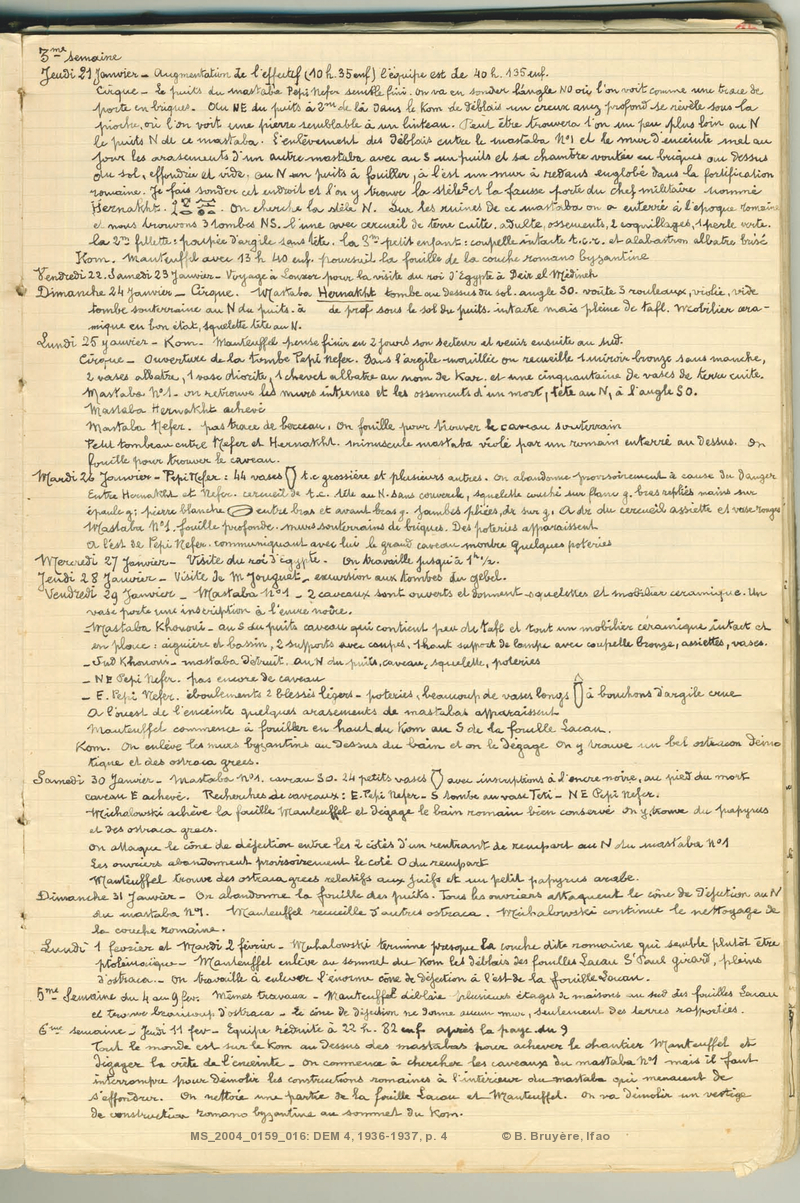 3me semaine
Jeudi 21 Janvier – Augmentation de l'effectif (10 h. 35 enf) l'équipe est de 40 h. 135 enf.
Cirque – Le puits du mastaba Pepi Nefer semble fini. On va en sonder l'angle NO où l'on voit comme une trace de
porte en briques. Au NE du puits à 2m de là dans le Kom de déblais un creux assez profond se révèle sous la
pioche, où l'on voit une pierre semblable à un linteau. Peut être trouvera t'on un peu plus loin au N
le puits N de ce mastaba. L'enlèvement des déblais entre le mastaba N°1 et le mur d'enceinte met au
jour les arasements d'un autre mastaba avec au S un puits et sa chambre voutée en briques au dessus
du sol, effondrée et vide, au N un puits à fouiller, à l'est un mur à redans englobé dans la fortification
romaine. Je fais sonder cet endroit et l'on y trouve la stèle et la fausse porte du chef militaire nommé
Hernakht. On cherche la stèle N. Sur les ruines de ce mastaba on a enterré à l'époque romaine
et nous trouvons 3 tombes NS. l'une avec cercueil de terre cuite, adulte, ossements, 2 coquillages, 1 perle verte.
La 2me fillette : poupée d'argile sans tête. la 3me petit enfant : coupelle intacte t.c.r. et alabastron albatre brisé
Kom. Manteuffel avec 13 h 40 enf. poursuit la fouille de la couche romano byzantine
Vendredi 22. Samedi 23 Janvier – Voyage à Louxor pour la visite du roi d'Égypte à Deir el Médineh
Dimanche 24 Janvier – Cirque. Mastaba Hernakht tombe au dessus du sol. angle SO. voûte 3 rouleaux, violée, vide
tombe souterraine au N du puits. à de prof sous le sol du puits. intacte mais pleine de tafl. Mobilier céra-
mique en bon état, squelette tête au N.
Lundi 25 Janvier – Kom – Manteuffel pense finir en 2 jours son secteur et venir ensuite au sud.
Cirque – Ouverture de la tombe Pepi Nefer. Dans l'argile mouillée on recueille 1 miroir bronze sans manche,
2 vases albatre, 1 vase diorite, 1 chevet albatre au nom de Kar. et une cinquantaine de vases de terre cuite.
Mastaba N°1 – on retrouve les murs internes et les ossements d'un mort, tête au N, à l'angle SO.
Mastaba Hernakht achevé
Mastaba Nefer. pas trace de berceau. On fouille pour trouver le caveau souterrain
Petit tombeau entre Nefer et Hernakht. minuscule mastaba violé par un romain enterré au dessus. On
fouille pour trouver le caveau.
Mardi 26 Janvier – Pepi Nefer : 44 vases t.c grossière et plusieurs autres. On abandonne provisoirement à cause du danger
Entre Hernakht et Nefer. cercueil de t.c. tête au N. sans couvercle, squelette couché sur flanc g. bras repliés mains sur
épaule g: pierre blanche entre bras et avant bras g. jambes pliées, dr sur g. A dr du cercueil assiette et vase rouges
Mastaba N°1. fouille profonde. murs souterrains de briques. Des poteries apparaissent
A l'est de Pepi Nefer. communiquant avec lui le grand caveau montre quelques poteries
Mercredi 27 Janvier – Visite du roi d'Égypte. On travaille jusqu'à 1h 1/2.
Jeudi 28 Janvier – Visite de Mr Jouguet – excursion aux tombes du gebel.
Vendredi 29 Janvier – Mastaba N°1 – 2 caveaux sont ouverts et donnent squelettes et mobilier céramique. Un
vase porte une inscription à l'encre noire.
– Mastaba Khououi – au S du puits caveau qui contient peu de tafl et tout un mobilier céramique intact et
en place : aiguière et bassin, 2 supports avec coupes, 1 haut support de lampe avec coupelle bronze, assiettes, vases.
– Sud Khououi – mastaba détruit. au N du puits, caveau, squelette, poteries
– NE Pepi Nefer. pas encore de caveau
– E. Pepi Nefer. éboulements 2 blessés légers – poteries, beaucoup de vases longs à bouchons d'argile crue
A l'ouest de l'enceinte quelques arasements de mastabas apparaissent
Manteuffel commence à fouiller en haut du Kom au S de la fouille Lacau.
Kom. On enlève les murs byzantins au dessus du bain et on le dégage On y trouve un bel ostracon démo
tique et des ostraca grecs.
Samedi 30 Janvier – Mastaba N°1. caveau SO. 24 petits vases avec inscriptions à l'encre noire, au pied du mort
caveau E achevé. Recherches de caveaux : E. Pepi Nefer – S tombe au vase Teti – NE Pepi Nefer.
Michalowski achève la fouille Manteuffel et dégage le bain romain bien conservé On y trouve du papyrus
et des ostraca grecs.
On attaque le cône de déjection entre les 2 côtés d'un rentrant de rempart au N du mastaba N°1
Les ouvriers abandonnent provisoirement le coté O du rempart
Manteuffel trouve des ostraca grecs relatifs aux juifs et un petit papyrus arabe.
Dimanche 31 Janvier – On abandonne la fouille des puits. Tous les ouvriers attaquent le cône de déjection au N
du mastaba N°1. Manteuffel recueille d'autres ostraca. Michalowski continue le nettoyage de
la couche romaine.
Lundi 1 février et Mardi 2 février – Michalowski termine presque la couche dite romaine qui semble plutôt être
ptolémaïque – Manteuffel enlève au sommet du Kom les déblais des fouilles Lacau St Paul Girard, pleins
d'ostraca. – On travaille à enlever l'énorme cône de déjection à l'est de la fouille Lacau.
5me Semaine du 4 au 9 fev. Mêmes travaux – Manteuffel déblaie plusieurs étages de maisons au sud des fouilles Lacau
et trouve beaucoup d'ostraca – le cône de déjection ne donne aucun mur, seulement des terres rapportées.
6me semaine – Jeudi 11 fev – Equipe réduite à 22 h. 82 enf après la paye du 9
Tout le monde est sur le Kom au dessus des mastabas pour achever le chantier Manteuffel et
dégager la crête de l'enceinte – On commence à chercher les caveaux du mastaba N°1 mais il faut
interrompre pour démolir les constructions romaines à l'intérieur du mastaba qui menacent de
s'effondrer. On nettoie une partie de la fouille Lacau et Manteuffel. On va démolir un vestige
de construction romano byzantine au sommet du Kom.
MS_2004_0159_016: DEM 4, 1936-1937, p. 4 © B. Bruyère, Ifao